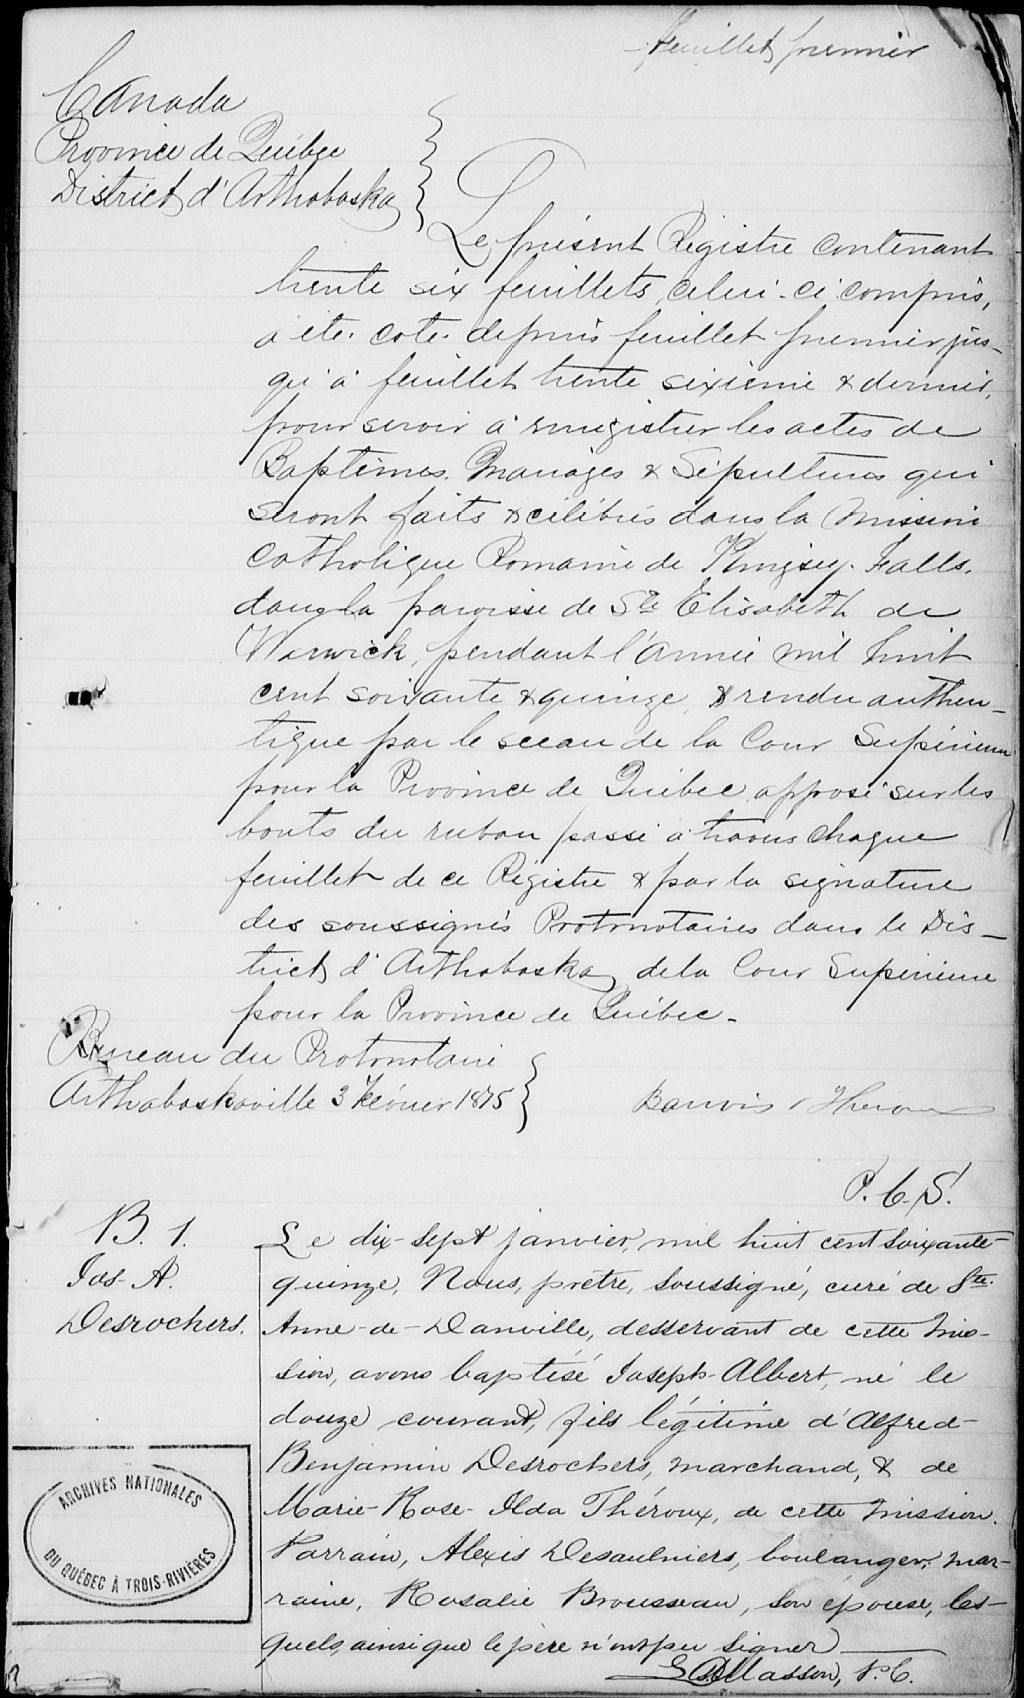 feuillet premier
Canada
Province de Québec
District d'Arthabaska
Le présent Régistre contenant
trente six feuillets, celui-ci compris,
a été coté depuis feuillet premier jus-
qu'à feuillet trente sixième & dernier,
pour servir à enregistrer les actes de
Baptêmes, Mariages & Sépultures qui
seront faits & célébrés dans la Mission
Catholique Romaine de Kingsey Falls,
dans la paroisse de Ste Elisabeth de
Warwick, pendant l'année mil huit
cent soixante & quinze, & rendu authen-
tique par le sceau de la Cour Supérieure
pour la Province de Québec apposé sur les
bouts du ruban passé à travers chaque
feuillet de ce Régistre & par la signature
des soussignés Protonotaires dans le Dis-
trict d'Arthabaska de la Cour Supérieure
pour la Province de Québec.
Bureau du Protonotaire
Arthabaskaville 3 Février 1875
P. C. S.
B. 1.
Jos-A.
Desrochers.
Le dix-sept janvier, mil huit cent soixante-
quinze, Nous, prêtre, soussigné, curé de Ste.
Anne-de-Danville, desservant de cette mis-
sion, avons baptisé Joseph-Albert, né le
douze courant, fils légitime d'Alfred-
Benjamin Desrochers, marchand, & de
Marie-Rose-Ilda Théroux, de cette mission.
Parrain, Alexis Desaulniers, boulanger, mar-
raine, Rosalie Brousseau, son épouse, les-
quels, ainsi que le père n'ont pu signer
Masson, P. C.
ARCHIVES NATIONALES
DU QUÉBEC À TROIS-RIVIÈRES